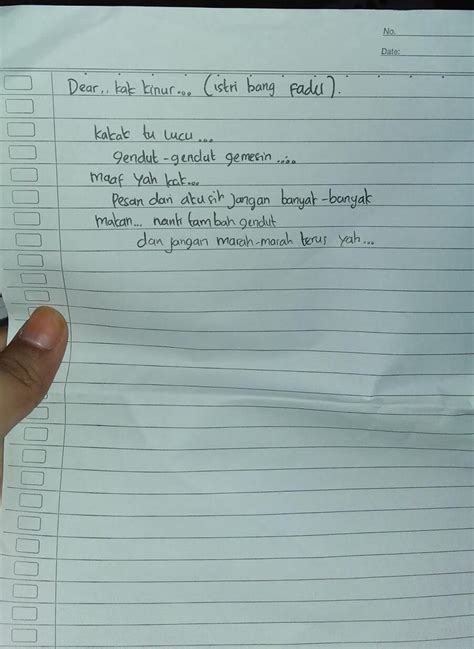 No.
Date:
Dear,, kak kinur... (istri bang fadil).
kakak tu lucu...
gendut-gendut gemesin.....
maaf yah kak...
Pesan dari aku sih jangan banyak-banyak
makan... nanti tambah gendut
dan jangan marah-marah terus yah...